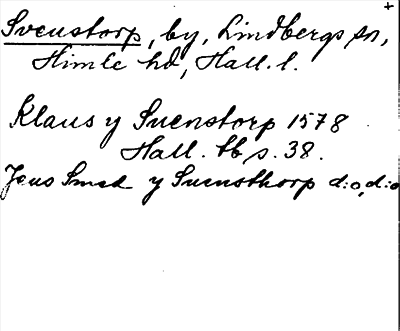 +
Svenstorp, by, Lindbergs sn,
Himle hd, Hall. l.
Klaus y Suenstorp 1578
Hall. tb s. 38.
Jens Smed y Suensthorp d:o, d:o